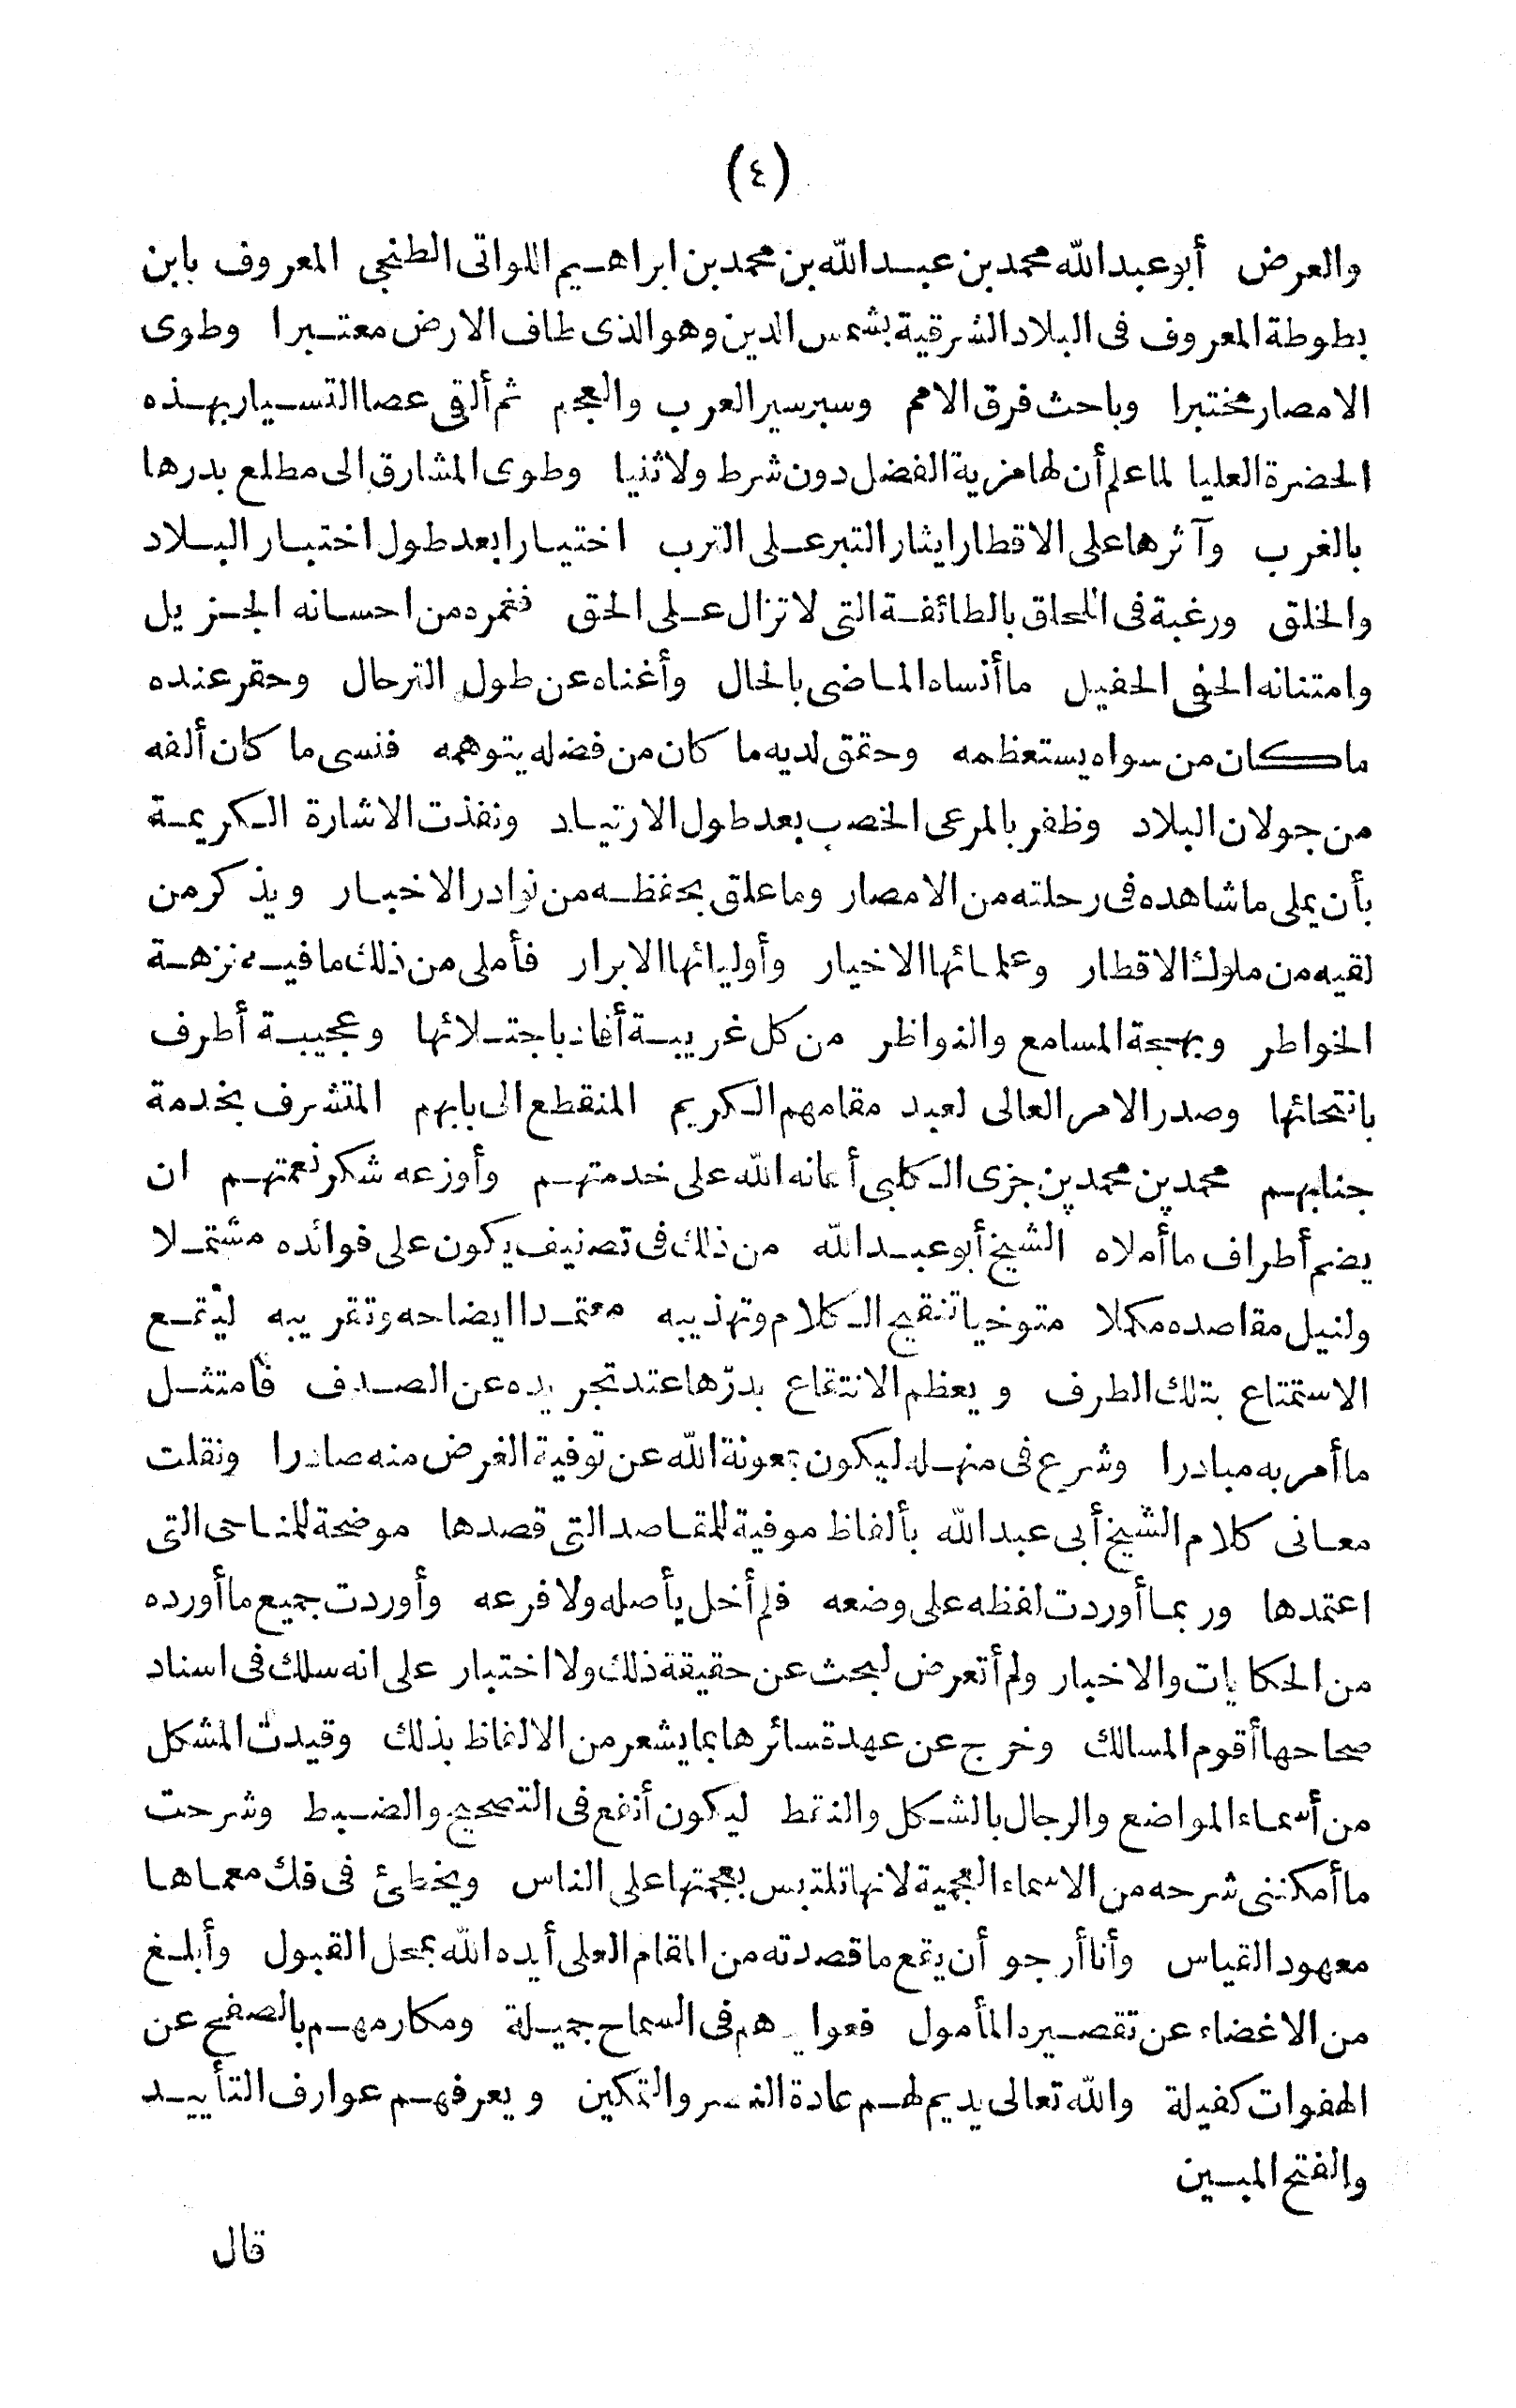 (٤)
والعرض أبو عبد الله محمد بن عبد الله بن محمد بن ابراهيم اللواتى الطنجى المعروف بابن
بطوطة المعروف فى البلاد الشرقية بشمس الدين وهو الذى طاف الارض معتبرا وطوى
الامصار مختبرا وباحث فرق الامم وسبر سير العرب والعجم ثم ألقى عصا التسيار بهذه
الحضرة العليا لما علم أن لها مزية الفضل دون شرط ولا ثنيا وطوى المشارق الى مطلع بدرها
بالغرب وآثرها على الاقطار ايثار التبر على الترب اختيارا بعد طول اختبار البلاد
والخلق ورغبة فى اللحاق بالطائفة التى لا تزال على الحق فغمره من احسانه الجزيل
وامتنانه الحفى الحفيل ما أنساه الماضى بالحال وأغناه عن طول الترحال وحقر عنده
ما كان من سواه يستعظمه وحقق لديه ما كان من فضله يتوهمه فنسى ما كان ألفه
من جولان البلاد وظفر بالمرعى الخصب بعد طول الارتياد ونفذت الاشارة الكريمة
بأن يملى ما شاهده فى رحلته من الامصار وما علق بحفظه من نوادر الاخبار ويذكر من
لقيه من ملوك الاقطار وعلمائها الاخيار وأوليائها الابرار فأملى من ذلك ما فيه نزهة
الخواطر وبهجة المسامع والنواظر من كل غريبة أفاد باجتلائها وعجيبة أطرف
بانتحائها وصدر الامر العالى لعبد مقامهم الكريم المنقطع الى بابهم المتشرف بخدمة
جنابهم محمد بن محمد بن جزى الكلبى أعانه الله على خدمتهم وأوزعه شكر نعمتهم ان
يضم أطراف ما أملاه الشيخ أبو عبد الله من ذلك فى تصنيف يكون على فوائده مشتملا
ولنيل مقاصده مكملا متوخيا تنقيح الكلام وتهذيبه معتمدا ايضاحه وتقريبه ليقع
الاستمتاع بتلك الطرف ويعظم الانتفاع بدرّها عند تجريده عن الصدف فامتثل
ما أمر به مبادرا وشرع فى منهله ليكون بمعونة الله عن توفية الغرض منه صادرا ونقلت
معانى كلام الشيخ أبى عبد الله بألفاظ موفية للمقاصد التى قصدها موضحة للمناحى التى
اعتمدها وربما أوردت لفظه على وضعه فلم أخل بأصله ولا فرعه وأوردت جميع ما أورده
من الحكايات والاخبار ولم أتعرض لبحث عن حقيقة ذلك ولا اختبار على انه سلك فى اسناد
صحاحها أقوم المسالك وخرج عن عهدة سائرها بما يشعر من الالفاظ بذلك وقيدت المشكل
من أسماء المواضع والرجال بالشكل والنقط ليكون أنفع فى التصحيح والضبط وشرحت
ما أمكننى شرحه من الاسماء العجمية لانها تلتبس بعجمتها على الناس ويخطئ فى فك معماها
معهود القياس وأنا أرجو أن يقع ما قصدته من المقام العلى أيده الله بمحل القبول وأبلغ
من الاغضاء عن تقصيره المأمول فعوا هم فى السماح جميلة ومكارمهم بالصفح عن
الهفوات كفيلة والله تعالى يديم لهم عادة النصر والتمكين ويعرفهم عوارف التأييد
والفتح المبين
قال